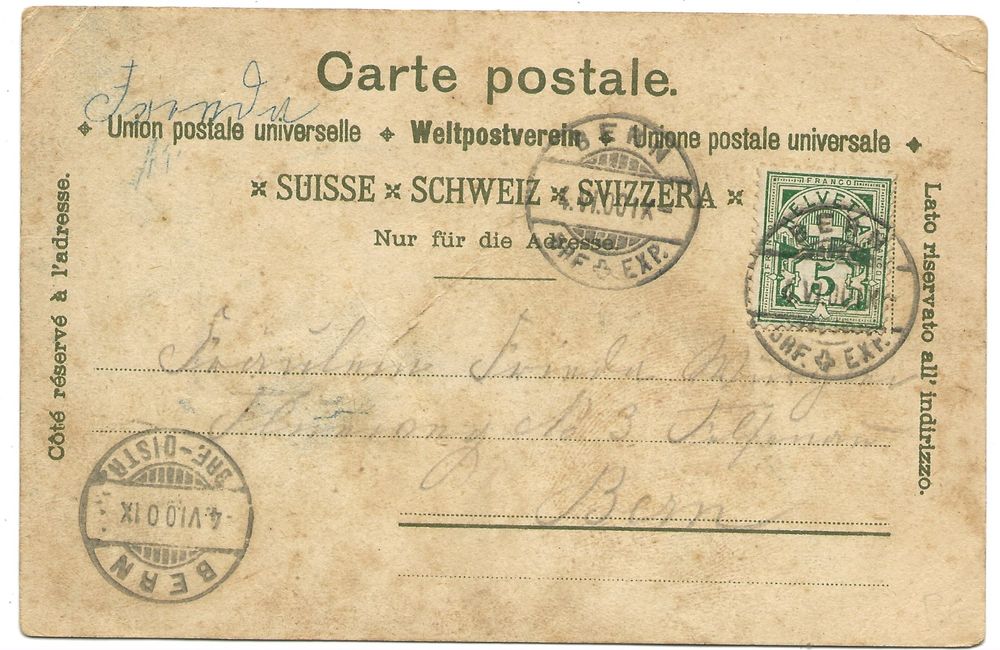 Carte postale.
Union postale universelle Weltpostverein Unione postale universale
SUISSE SCHWEIZ SVIZZERA
Nur für die Adresse.
Côté réservé à l'adresse.
Lato riservato all' indirizzo.
FRANCO
HELVETIA
5
BERN
4.VI.00 IX
BHF EXP.
BERN
BHF EXP.
Fräulein Frieda
№ 3
Bern
BRF-DISTR.
-4.VI.00 IX
BERN